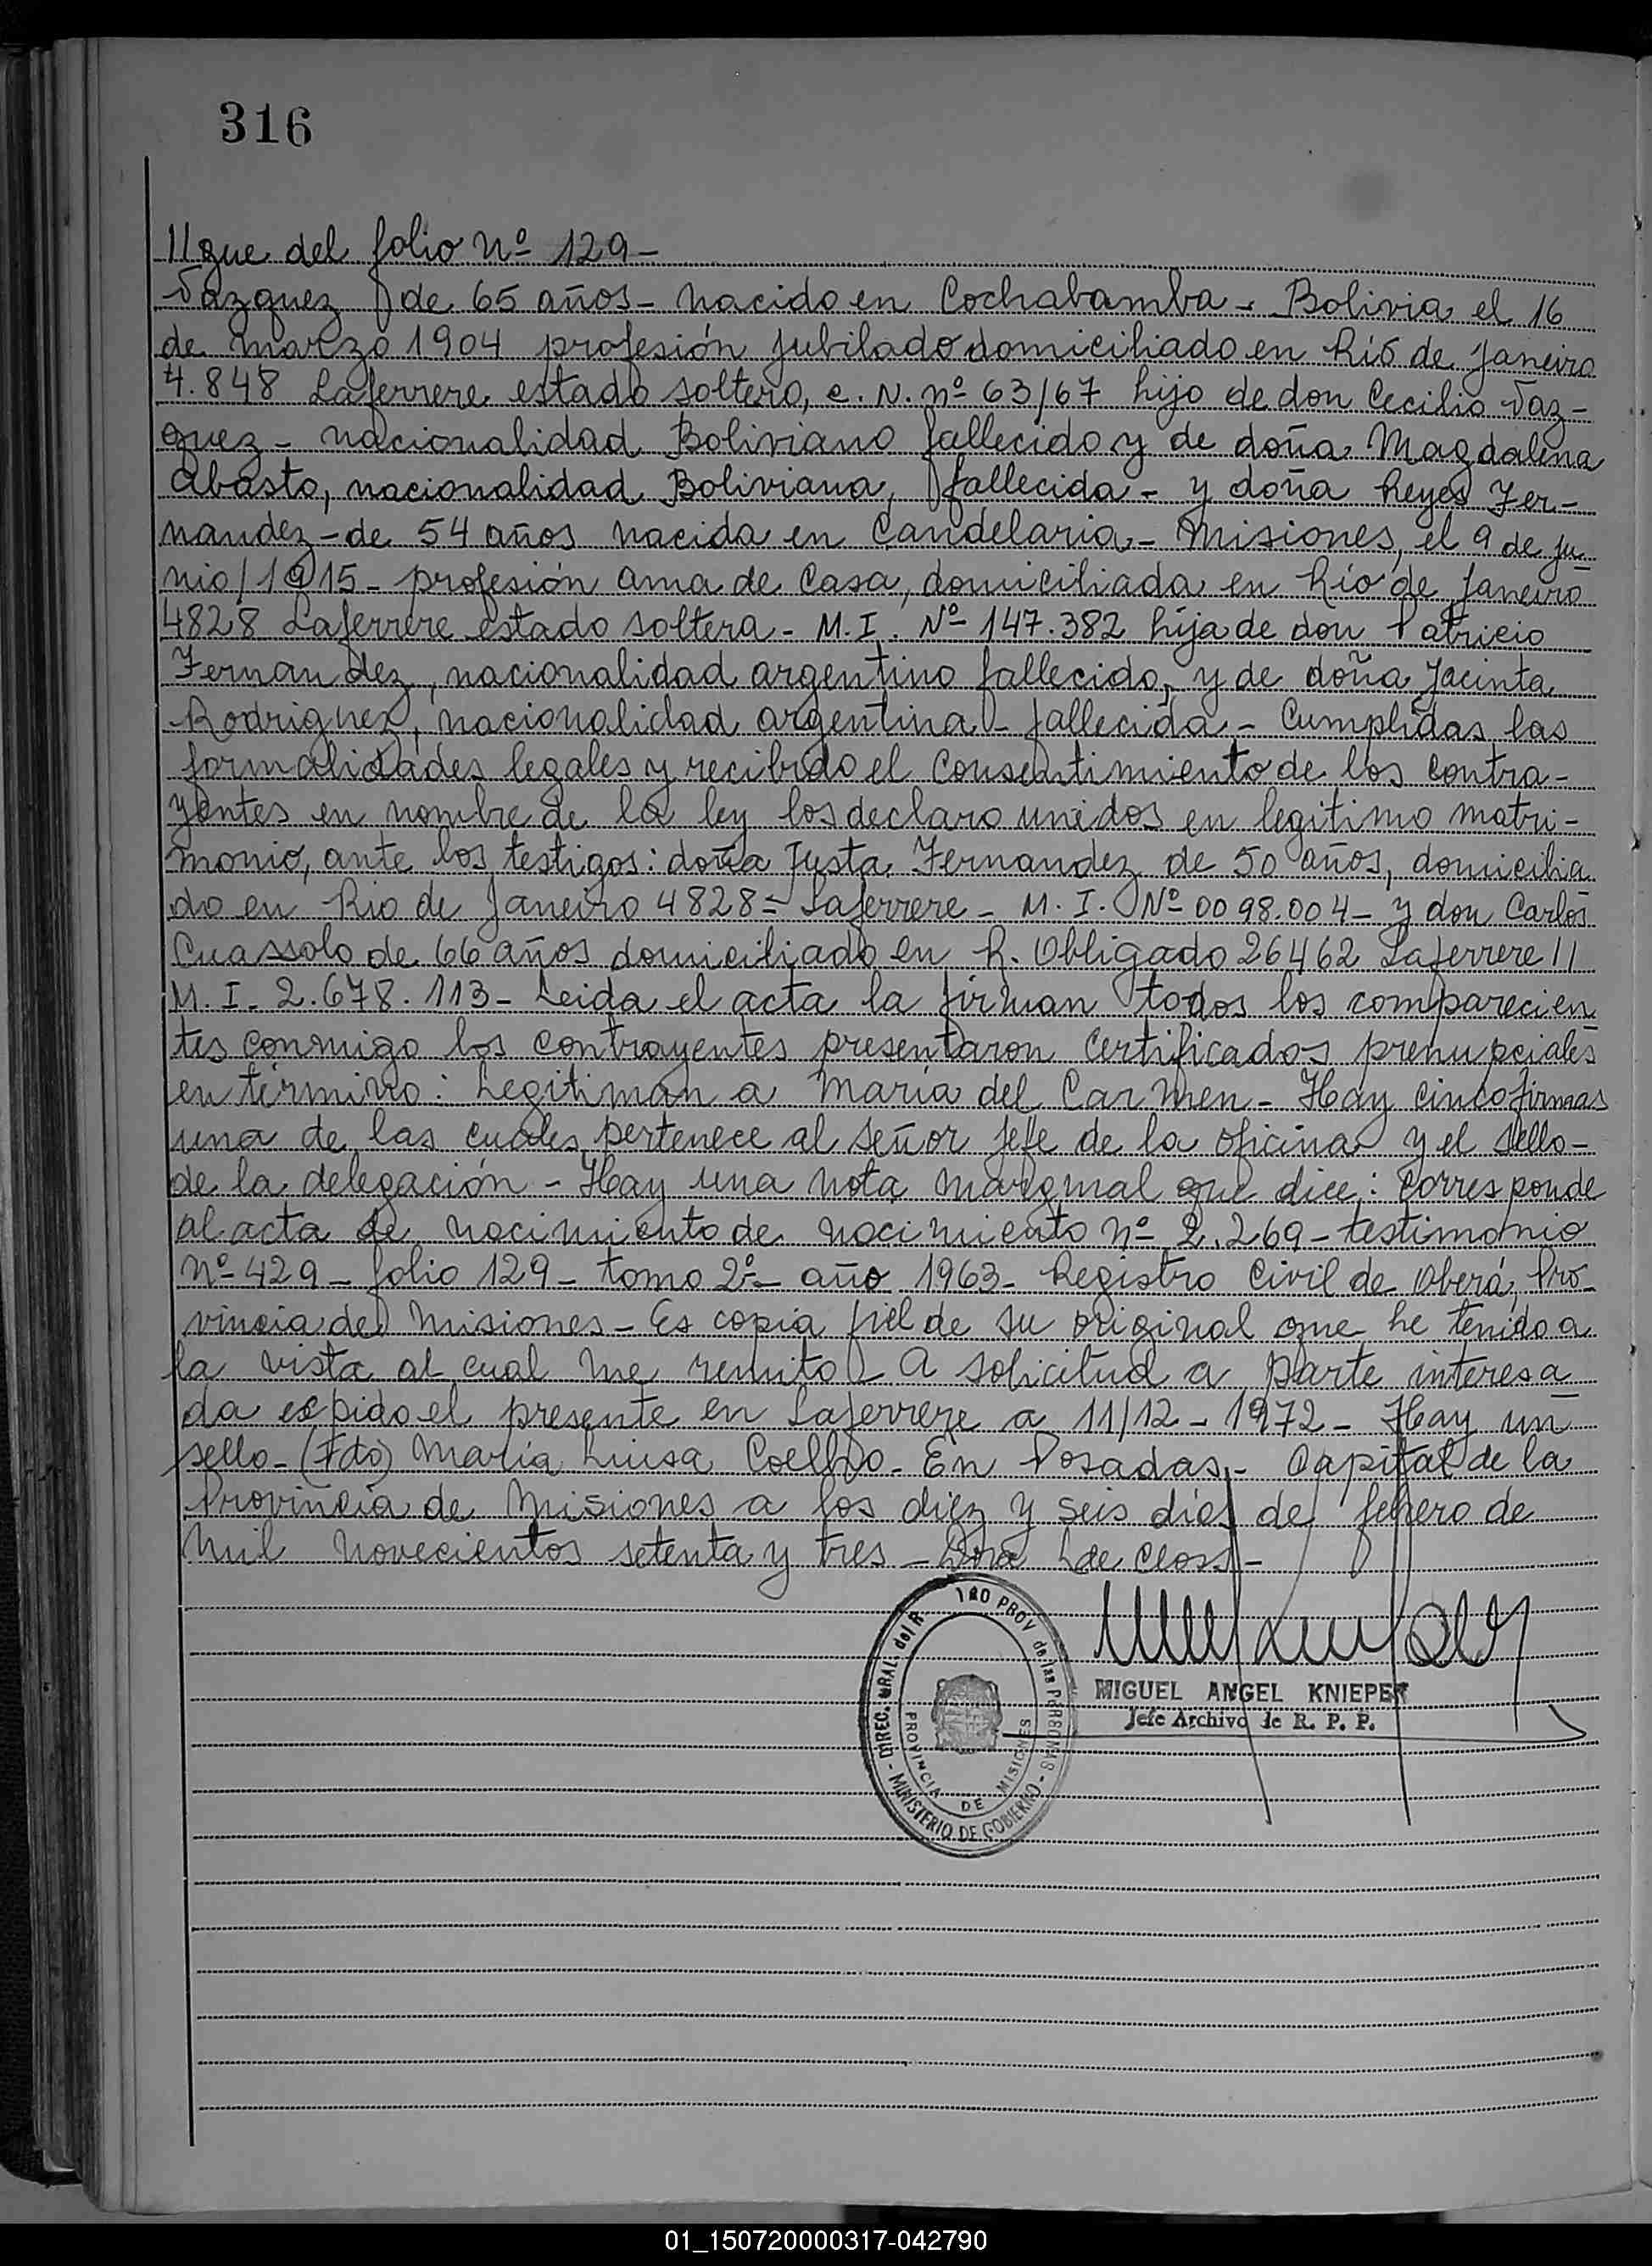 316
//gue del folio Nº 129-
Vazquez de 65 años- nacido en Cochabamba- Bolivia el 16
de marzo 1904 profesión jubilado domiciliado en Río de Janeiro
4.848 Laferrere estado soltero, C. N. nº 63/67 hijo de don Cecilio Vaz-
quez- nacionalidad Boliviano fallecido y de doña Magdalena
Abasto, nacionalidad Boliviana, fallecida- y doña Reyes Fer-
nandez- de 54 años nacida en Candelaria- Misiones, el 9 de ju-
nio/1915- profesión ama de casa, domiciliada en Río de Janeiro
4828 Laferrere estado soltera- M. I. Nº 147.382 hija de don Patricio
Fernandez, nacionalidad argentino fallecido, y de doña Jacinta
Rodriguez, nacionalidad argentina- fallecida- Cumplidas las
formalidades legales y recibido el consentimiento de los contra-
yentes en nombre de la ley los declaro unidos en legitimo matri-
monio, ante los testigos: doña Justa Fernandez de 50 años, domicilia
do en Rio de Janeiro 4828= Laferrere- M. I. Nº 0098.004- y don Carlos
Cuassolo de 66 años domiciliado en R. Obligado 26462 Laferrere //
M. I. 2.678.113- Leida el acta la firman todos los comparecien
tes conmigo los contrayentes presentaron certificados prenupciales
en término: Legitiman a María del Carmen- Hay cinco firmas
una de las cuales pertenece al señor jefe de la oficina y el sello-
de la delegación- Hay una nota marginal que dice: Corresponde
al acta de nacimiento de nacimiento nº 2.269- testimonio
Nº 429- folio 129- tomo 2º- año 1963- Registro Civil de Oberá, Pro-
vincia de Misiones- Es copia fiel de su original que he tenido a
la vista al cual me remito- A solicitud a parte interesa
da expido el presente en Laferrere a 11/12-1972- Hay un
sello- (Fdo) María Luisa Coelho- En Posadas,- Capital de la
Provincia de Misiones a los diez y seis días de febrero de
Mil novecientos setenta y tres- Dora L de Closs-
MIGUEL ANGEL KNIEPER
Jefe Archivo de R. P. P.
PROV de las PERSONAS
MINISTERIO DE GOBIERNO
PROVINCIA DE MISIONES
01_150720000317-042790